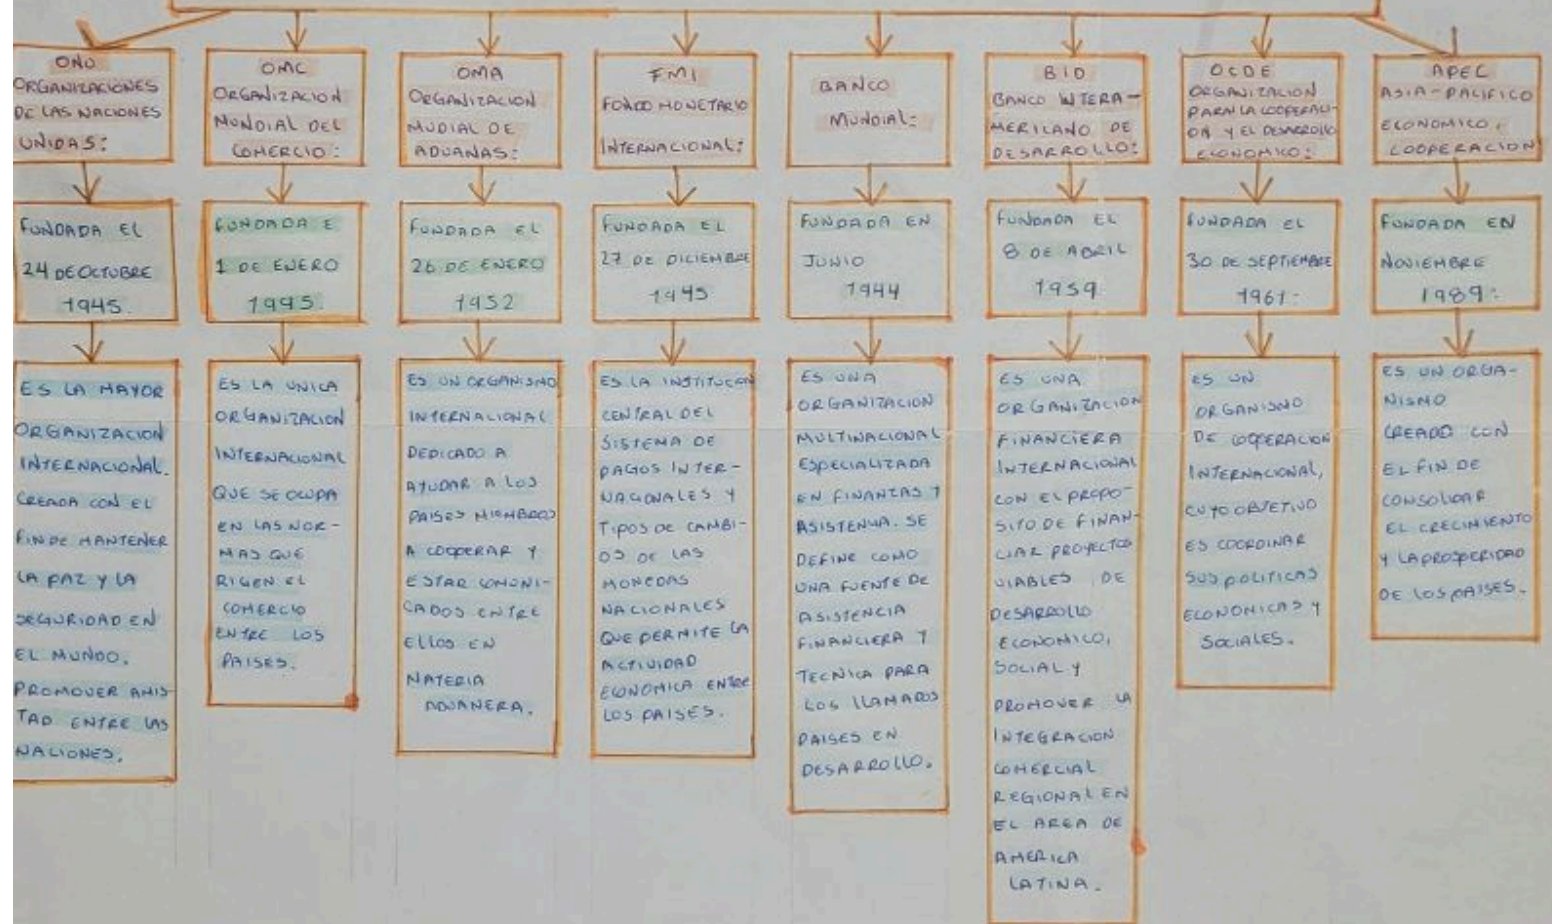 ONU
ORGANIZACIONES
DE LAS NACIONES
UNIDAS:
FUNDADA EL
24 DE OCTUBRE
1945.
ES LA MAYOR
ORGANIZACION
INTERNACIONAL.
CREADA CON EL
FIN DE MANTENER
LA PAZ Y LA
SEGURIDAD EN
EL MUNDO.
PROMOVER AMIS-
TAD ENTRE LAS
NACIONES.
OMC
ORGANIZACION
MUNDIAL DEL
COMERCIO:
FUNDADA E
1 DE ENERO
1995.
ES LA UNICA
ORGANIZACION
INTERNACIONAL
QUE SE OCUPA
EN LAS NOR-
MAS QUE
RIGEN EL
COMERCIO
ENTRE LOS
PAISES.
OMA
ORGANIZACION
MUDIAL DE
ADUANAS:
FUNDADA EL
26 DE ENERO
1952
ES UN ORGANISMO
INTERNACIONAL
DEDICADO A
AYUDAR A LOS
PAISES MIEMBROS
A COOPERAR Y
ESTAR COMUNI-
CADOS ENTRE
ELLOS EN
MATERIA
ADUANERA.
FMI
FONDO MONETARIO
INTERNACIONAL:
FUNDADA EL
27 DE DICIEMBRE
1945
ES LA INSTITUCION
CENTRAL DEL
SISTEMA DE
PAGOS INTER-
NACIONALES Y
TIPOS DE CAMBI-
OS DE LAS
MONEDAS
NACIONALES
QUE PERMITE LA
ACTIVIDAD
ECONOMICA ENTRE
LOS PAISES.
BANCO
MUNDIAL:
FUNDADA EN
JUNIO
1944
ES UNA
ORGANIZACION
MULTINACIONAL
ESPECIALIZADA
EN FINANZAS Y
ASISTENCIA. SE
DEFINE COMO
UNA FUENTE DE
ASISTENCIA
FINANCIERA Y
TECNICA PARA
LOS LLAMADOS
PAISES EN
DESARROLLO.
BID
BANCO INTERA-
MERICANO DE
DESARROLLO:
FUNDADA EL
8 DE ABRIL
1959
ES UNA
ORGANIZACION
FINANCIERA
INTERNACIONAL
CON EL PROPO-
SITO DE FINAN-
CIAR PROYECTOS
VIABLES DE
DESARROLLO
ECONOMICO,
SOCIAL Y
PROMOVER LA
INTEGRACION
COMERCIAL
REGIONAL EN
EL AREA DE
AMERICA
LATINA.
OCDE
ORGANIZACION
PARA LA COOPERACI-
ON Y EL DESARROLLO
ECONOMICO:
FUNDADA EL
30 DE SEPTIEMBRE
1961.
ES UN
ORGANISMO
DE COOPERACION
INTERNACIONAL,
CUYO OBJETIVO
ES COORDINAR
SUS POLITICAS
ECONOMICAS Y
SOCIALES.
APEC
ASIA-PACIFICO
ECONOMICO,
COOPERACION
FUNDADA EN
NOVIEMBRE
1989.
ES UN ORGA-
NISMO
CREADO CON
EL FIN DE
CONSOLIDAR
EL CRECIMIENTO
Y LA PROSPERIDAD
DE LOS PAISES.